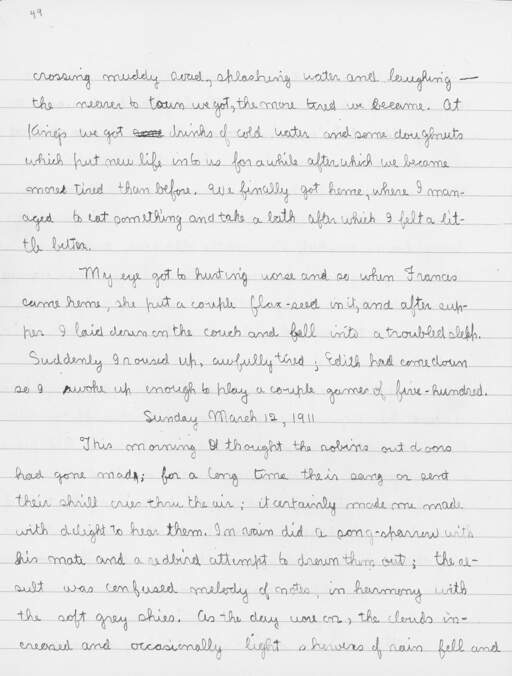 49
crossing muddy road, splashing water and laughing —
the nearer to town we got, the more tired we became. At
King's we got drinks of cold water and some doughnuts
which put new life into us for a while after which we became
more tired than before. We finally got home, where I man-
aged to eat something and take a bath after which I felt a lit-
tle better.
My eye got to hurting worse and so when Frances
came home, she put a couple flax-seed in it, and after sup-
per I laid down on the couch and fell into a troubled sleep.
Suddenly I roused up, awfully tired; Edith had come down
so I awoke up enough to play a couple games of five-hundred.
Sunday March 12, 1911
This morning I thought the robins out doors
had gone mad; for a long time they sang or sent
their shrill cries thru the air; it certainly made me made
with delight to hear them. In vain did a song-sparrow with
his mate and a redbird attempt to drown them out; the re-
sult was confused melody of notes, in harmony with
the soft grey skies. As the day wore on, the clouds in-
creased and occasionally light showers of rain fell and